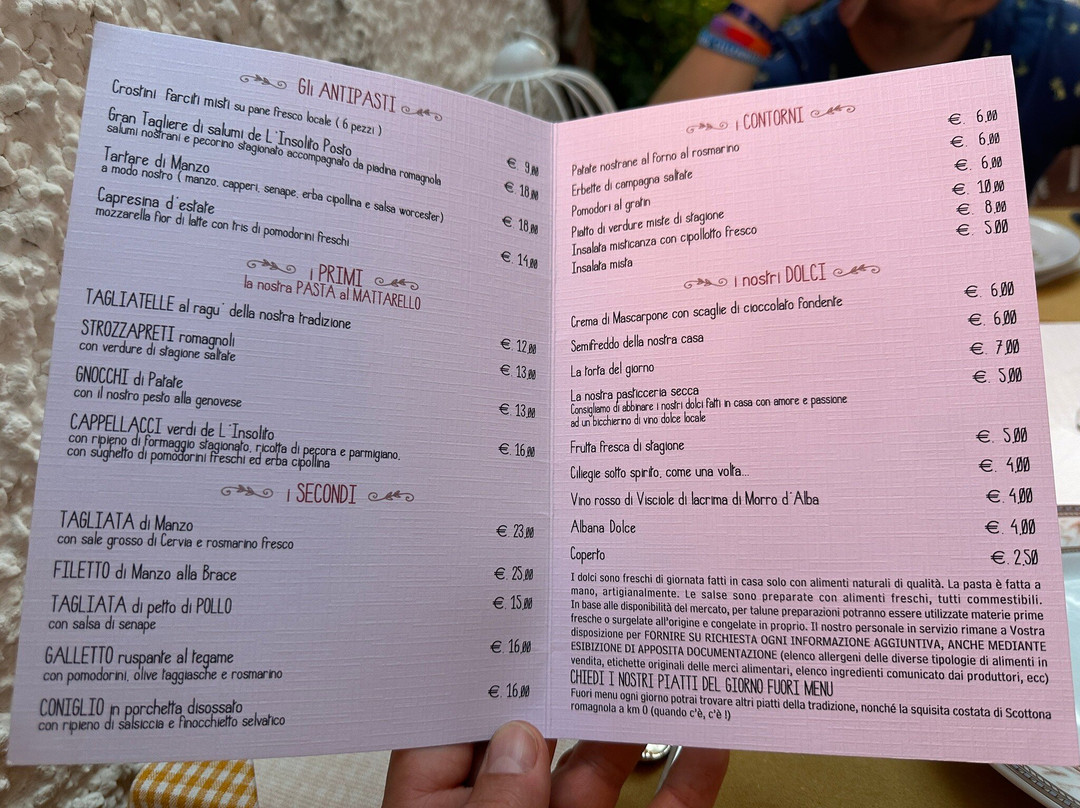 Gli ANTIPASTI
Crostini farciti misti su pane fresco locale ( 6 pezzi ) €. 9,00
Gran Tagliere di salumi de L'Insolito Posto €. 18,00
salumi nostrani e pecorino stagionato accompagnato da piadina romagnola
Tartare di Manzo €. 18,00
a modo nostro ( manzo, capperi, senape, erba cipollina e salsa worcester)
Capresina d'estate €. 14,00
mozzarella fior di latte con tris di pomodorini freschi
i PRIMI
la nostra PASTA al MATTARELLO
TAGLIATELLE al ragu' della nostra tradizione €. 12,00
STROZZAPRETI romagnoli €. 13,00
con verdure di stagione saltate
GNOCCHI di Patate €. 13,00
con il nostro pesto alla genovese
CAPPELLACCI verdi de L'Insolito €. 16,00
con ripieno di formaggio stagionato, ricotta di pecora e parmigiano,
con sughetto di pomodorini freschi ed erba cipollina
i SECONDI
TAGLIATA di Manzo €. 23,00
con sale grosso di Cervia e rosmarino fresco
FILETTO di Manzo alla Brace €. 25,00
TAGLIATA di petto di POLLO €. 15,00
con salsa di senape
GALLETTO ruspante al tegame €. 16,00
con pomodorini, olive taggiasche e rosmarino
CONIGLIO in porchetta disossato €. 16,00
con ripieno di salsiccia e finocchietto selvatico
i CONTORNI
Patate nostrane al forno al rosmarino €. 6,00
Erbette di campagna saltate €. 6,00
Pomodori al gratin €. 6,00
Piatto di verdure miste di stagione €. 10,00
Insalata misticanza con cipollotto fresco €. 8,00
Insalata mista €. 5,00
i nostri DOLCI
Crema di Mascarpone con scaglie di cioccolato fondente €. 6,00
Semifreddo della nostra casa €. 6,00
La torta del giorno €. 7,00
La nostra pasticceria secca €. 5,00
Consigliamo di abbinare i nostri dolci fatti in casa con amore e passione
ad un bicchierino di vino dolce locale
Frutta fresca di stagione €. 5,00
Ciliegie sotto spirito, come una volta... €. 4,00
Vino rosso di Visciole di lacrima di Morro d'Alba €. 4,00
Albana Dolce €. 4,00
Coperto €. 2,50
I dolci sono freschi di giornata fatti in casa solo con alimenti naturali di qualità. La pasta è fatta a
mano, artigianalmente. Le salse sono preparate con alimenti freschi, tutti commestibili.
In base alle disponibilità del mercato, per talune preparazioni potranno essere utilizzate materie prime
fresche o surgelate all'origine e congelate in proprio. Il nostro personale in servizio rimane a Vostra
disposizione per FORNIRE SU RICHIESTA OGNI INFORMAZIONE AGGIUNTIVA, ANCHE MEDIANTE
ESIBIZIONE DI APPOSITA DOCUMENTAZIONE (elenco allergeni delle diverse tipologie di alimenti in
vendita, etichette originali delle merci alimentari, elenco ingredienti comunicato dai produttori, ecc)
CHIEDI I NOSTRI PIATTI DEL GIORNO FUORI MENU
Fuori menu ogni giorno potrai trovare altri piatti della tradizione, nonché la squisita costata di Scottona
romagnola a km 0 (quando c'è, c'è !)